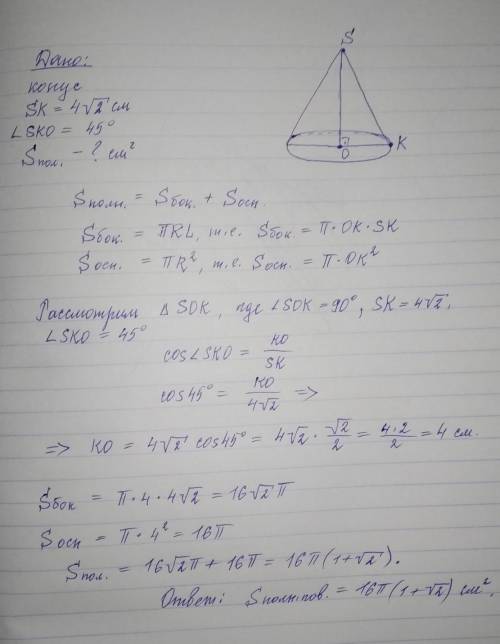 Дано:
S
конус
SK = 4√2 см
∠SKO = 45°
Sпол. - ? см²
K
O
Sполн. = Sбок. + Sосн.
Sбок. = πRL, т.е. Sбок. = π·OK·SK
Sосн. = πR², т.е. Sосн. = π·OK²
Рассмотрим △ SOK, где ∠SOK = 90°, SK = 4√2,
∠SKO = 45°
cos∠SKO = KO/SK
cos45° = KO/4√2 =>
=> KO = 4√2 cos45° = 4√2 · √2/2 = 4·2/2 = 4 см.
Sбок = π·4·4√2 = 16√2π
Sосн = π·4² = 16π
Sпол. = 16√2π + 16π = 16π(1+√2).
Ответ: Sполн.пов. = 16π(1+√2) см².